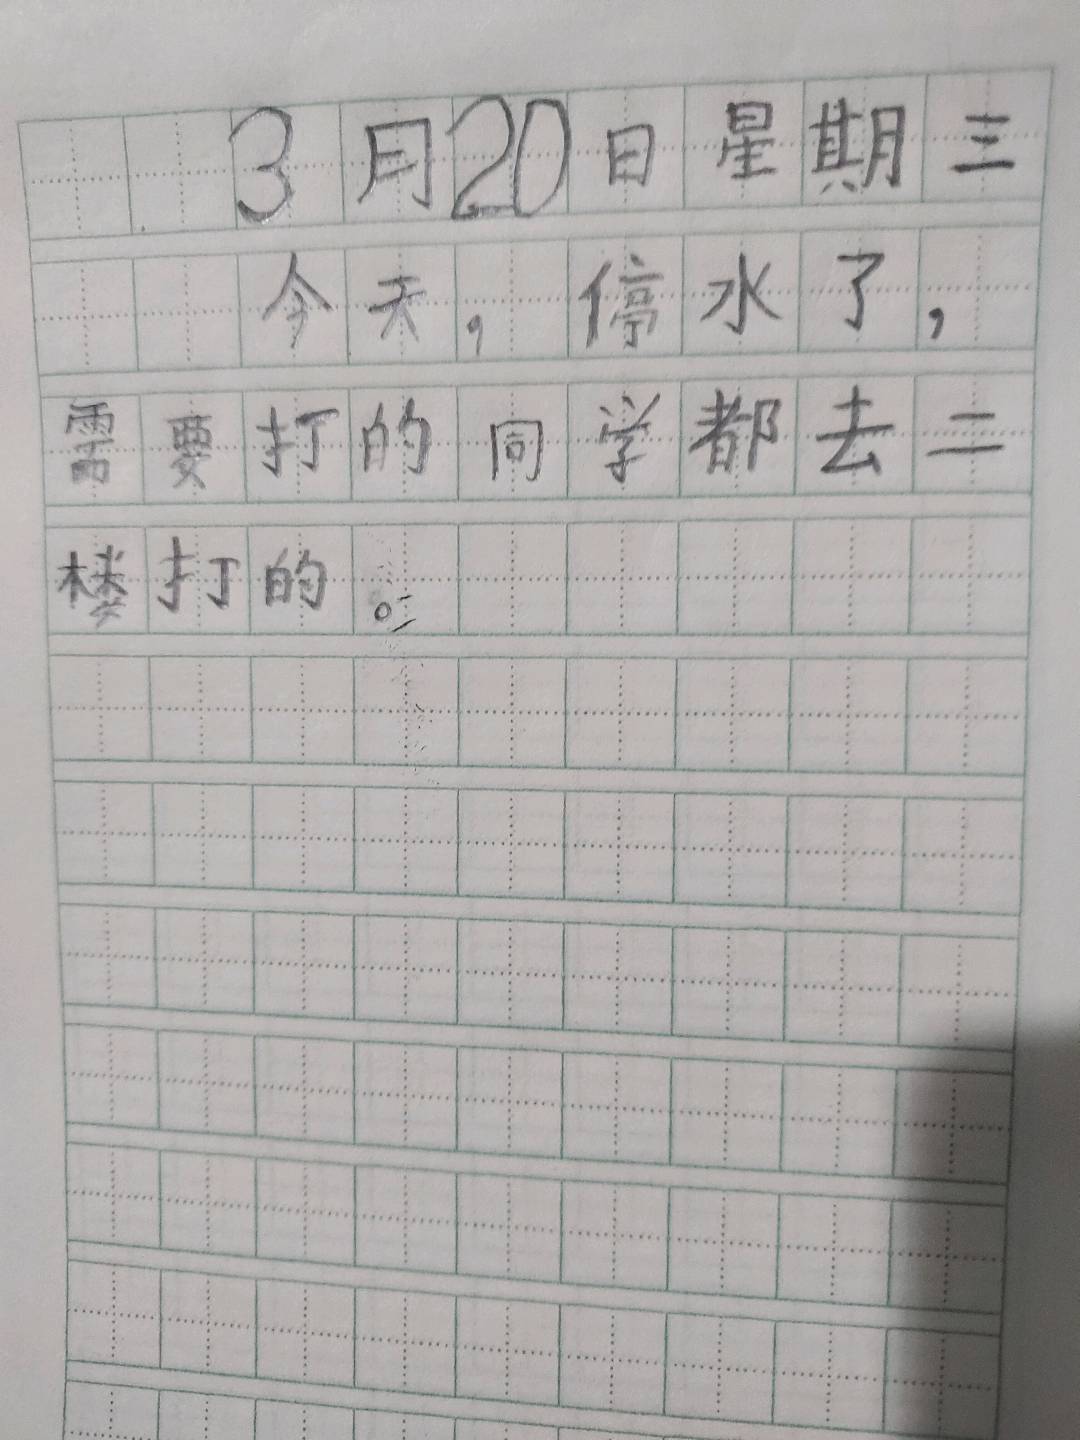 3月20日星期三
今天，停水了，
需要打的同学都去二
楼打的。